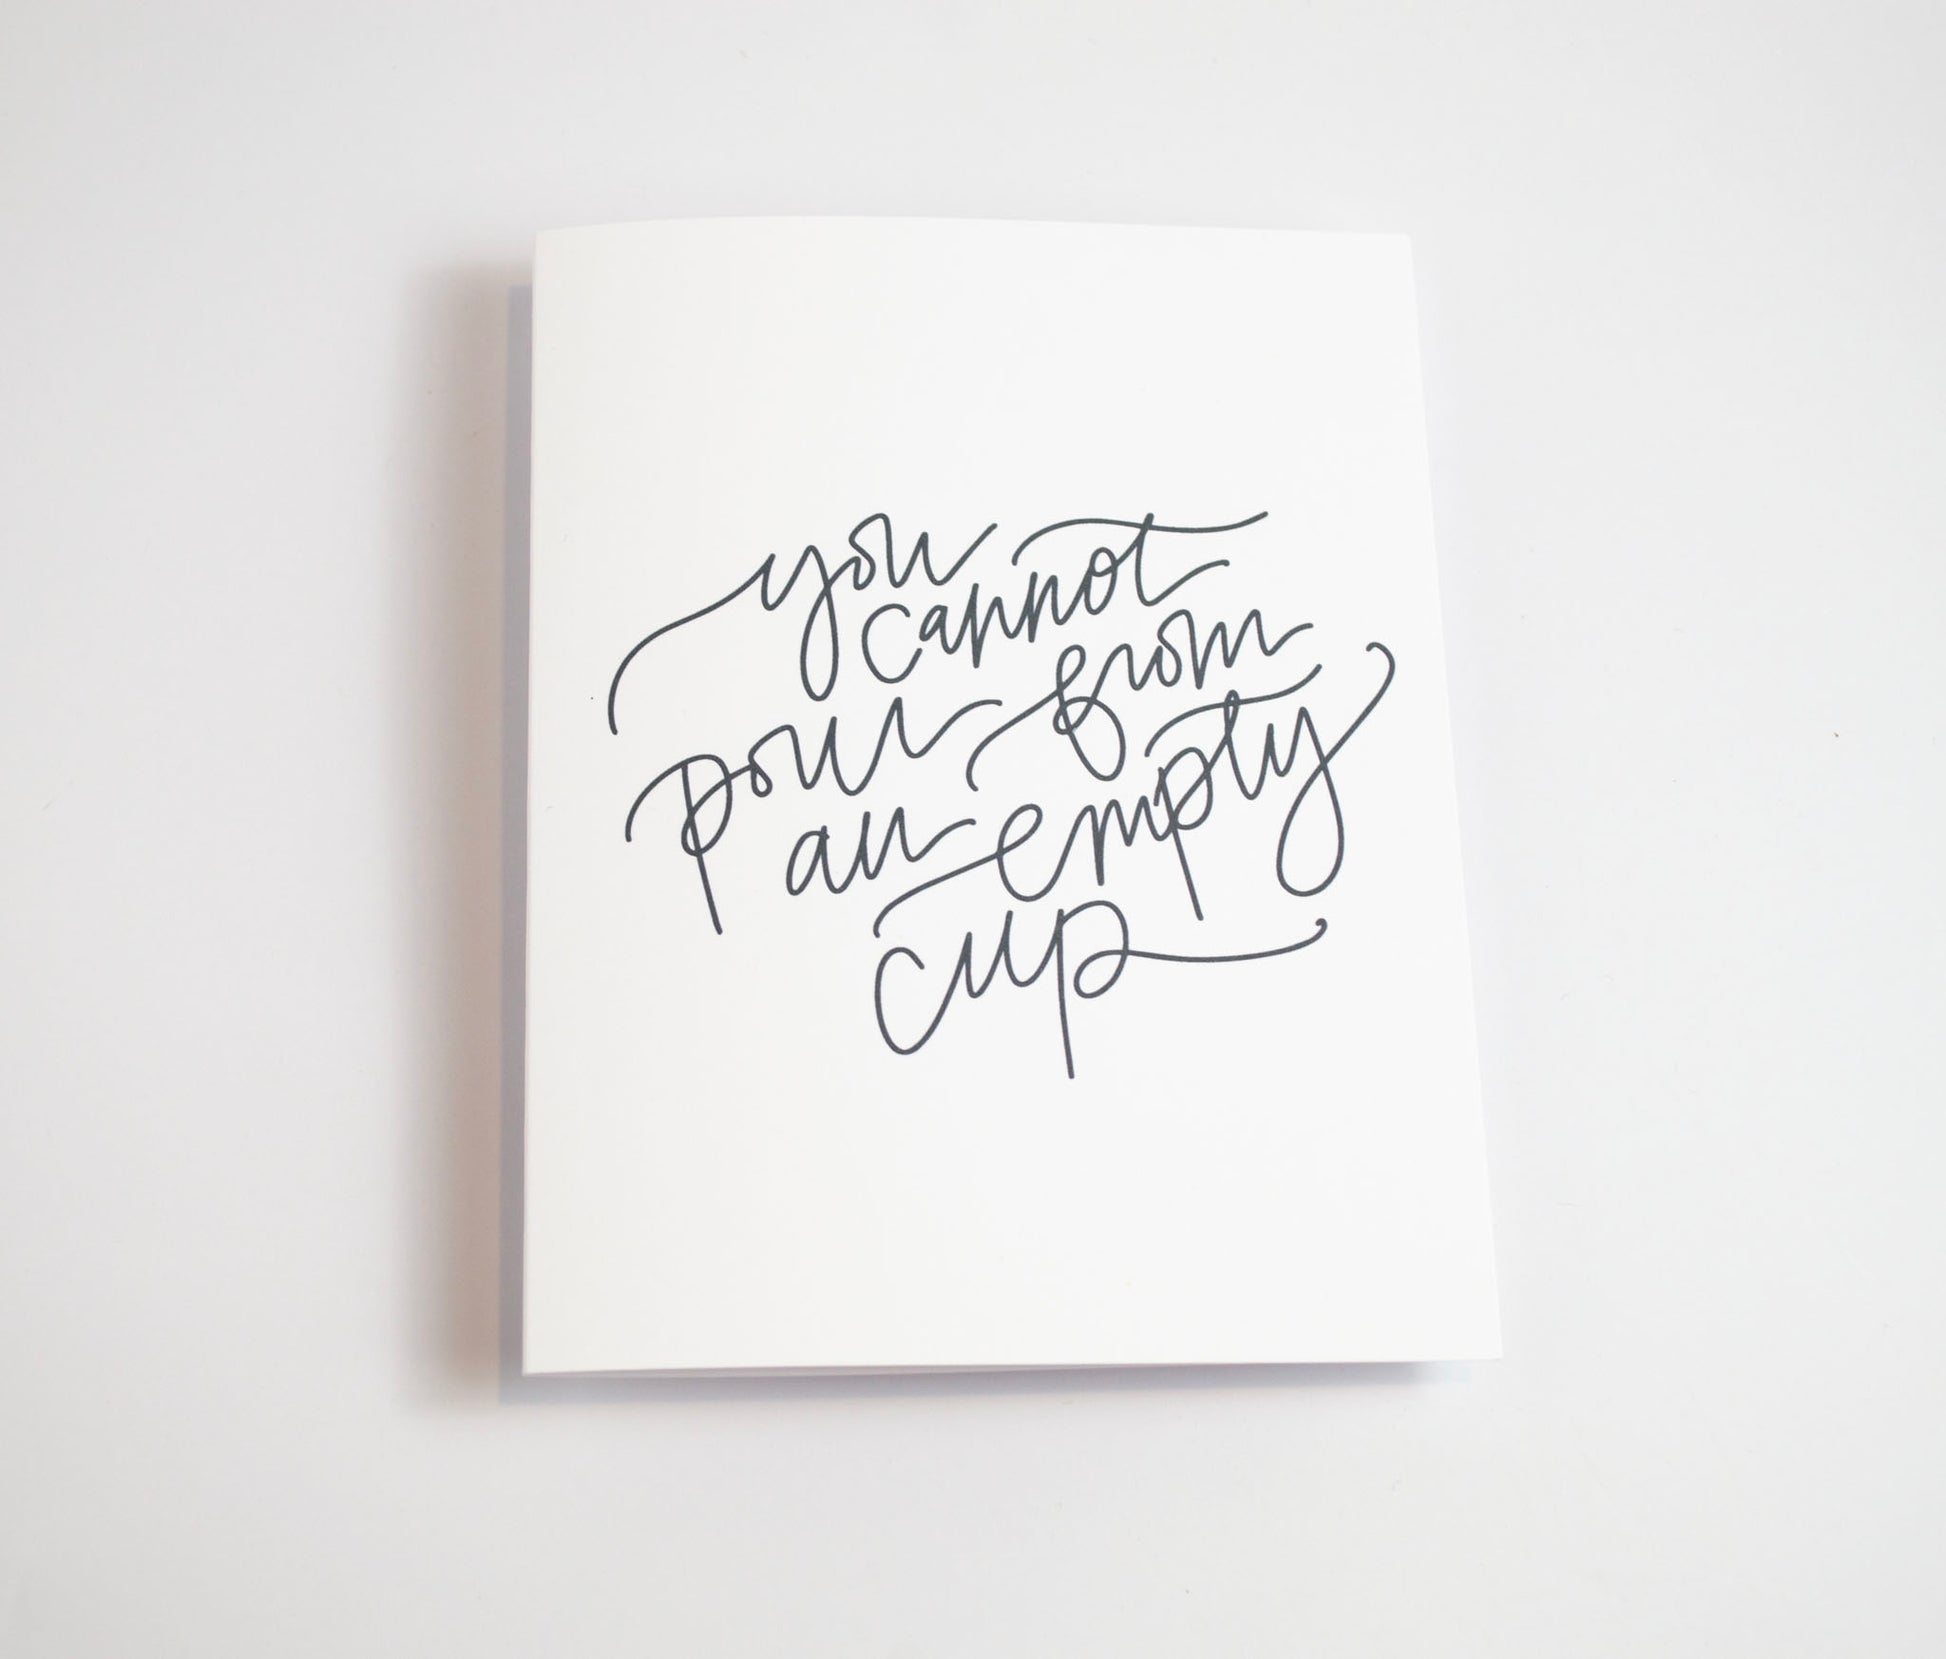 you cannot
pour from
an empty
cup